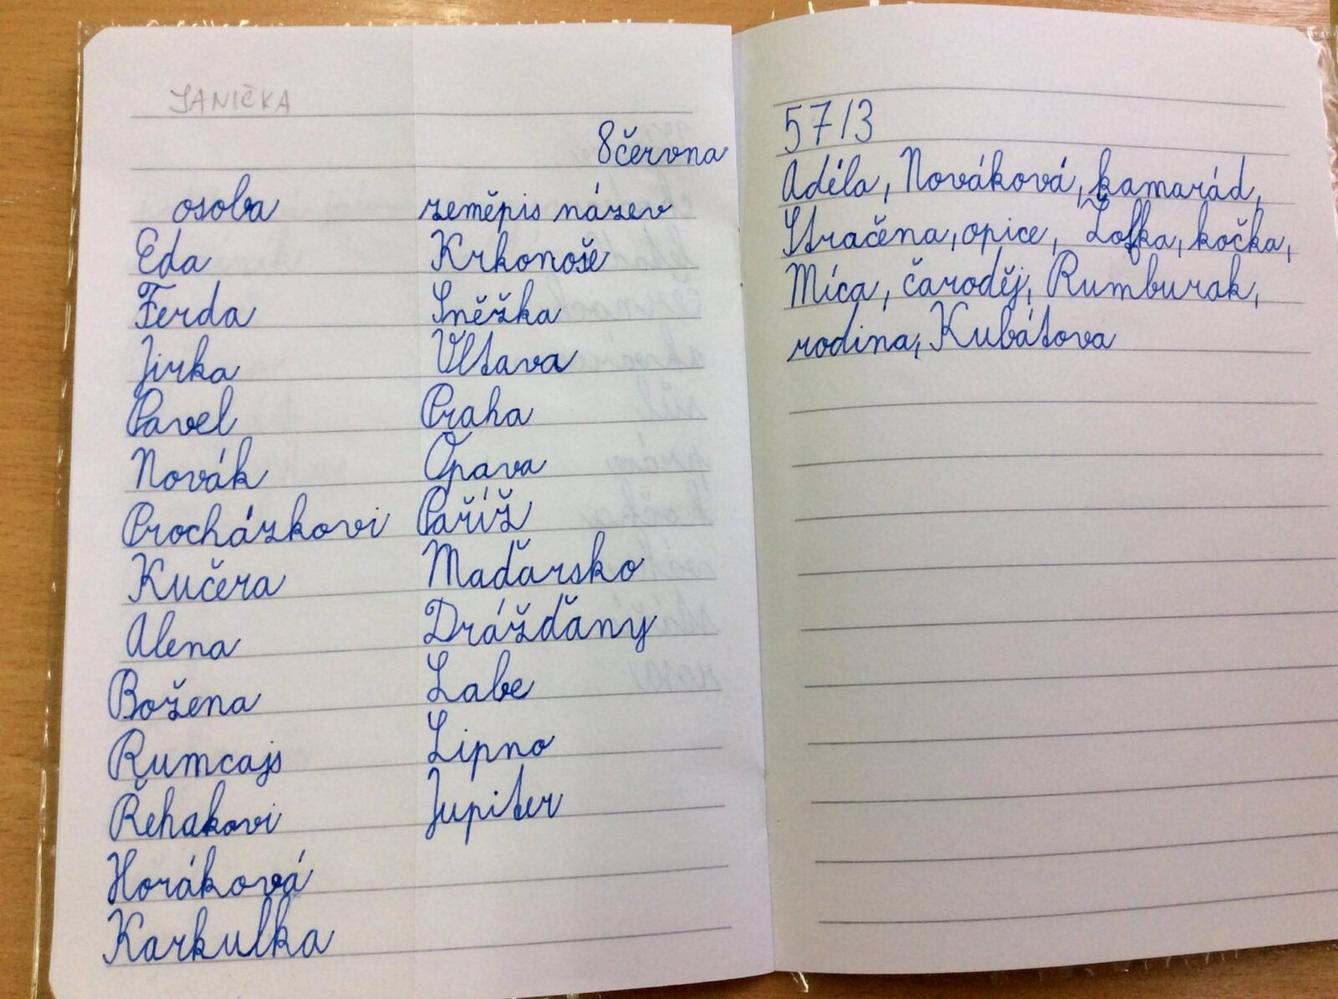 JANIČKA
8června
osoba zeměpis název
Eda Krkonoše
Ferda Sněžka
Jirka Vltava
Pavel Praha
Novák Opava
Procházkovi Paříž
Kučera Maďarsko
Alena Drážďany
Božena Labe
Rumcajs Lipno
Řehakovi Jupiter
Horáková
Karkulka
57/3
Adéla, Nováková, kamarád,
Stračena, opice, Žofka, kočka,
Míca, čaroděj, Rumburak,
rodina, Kubátova